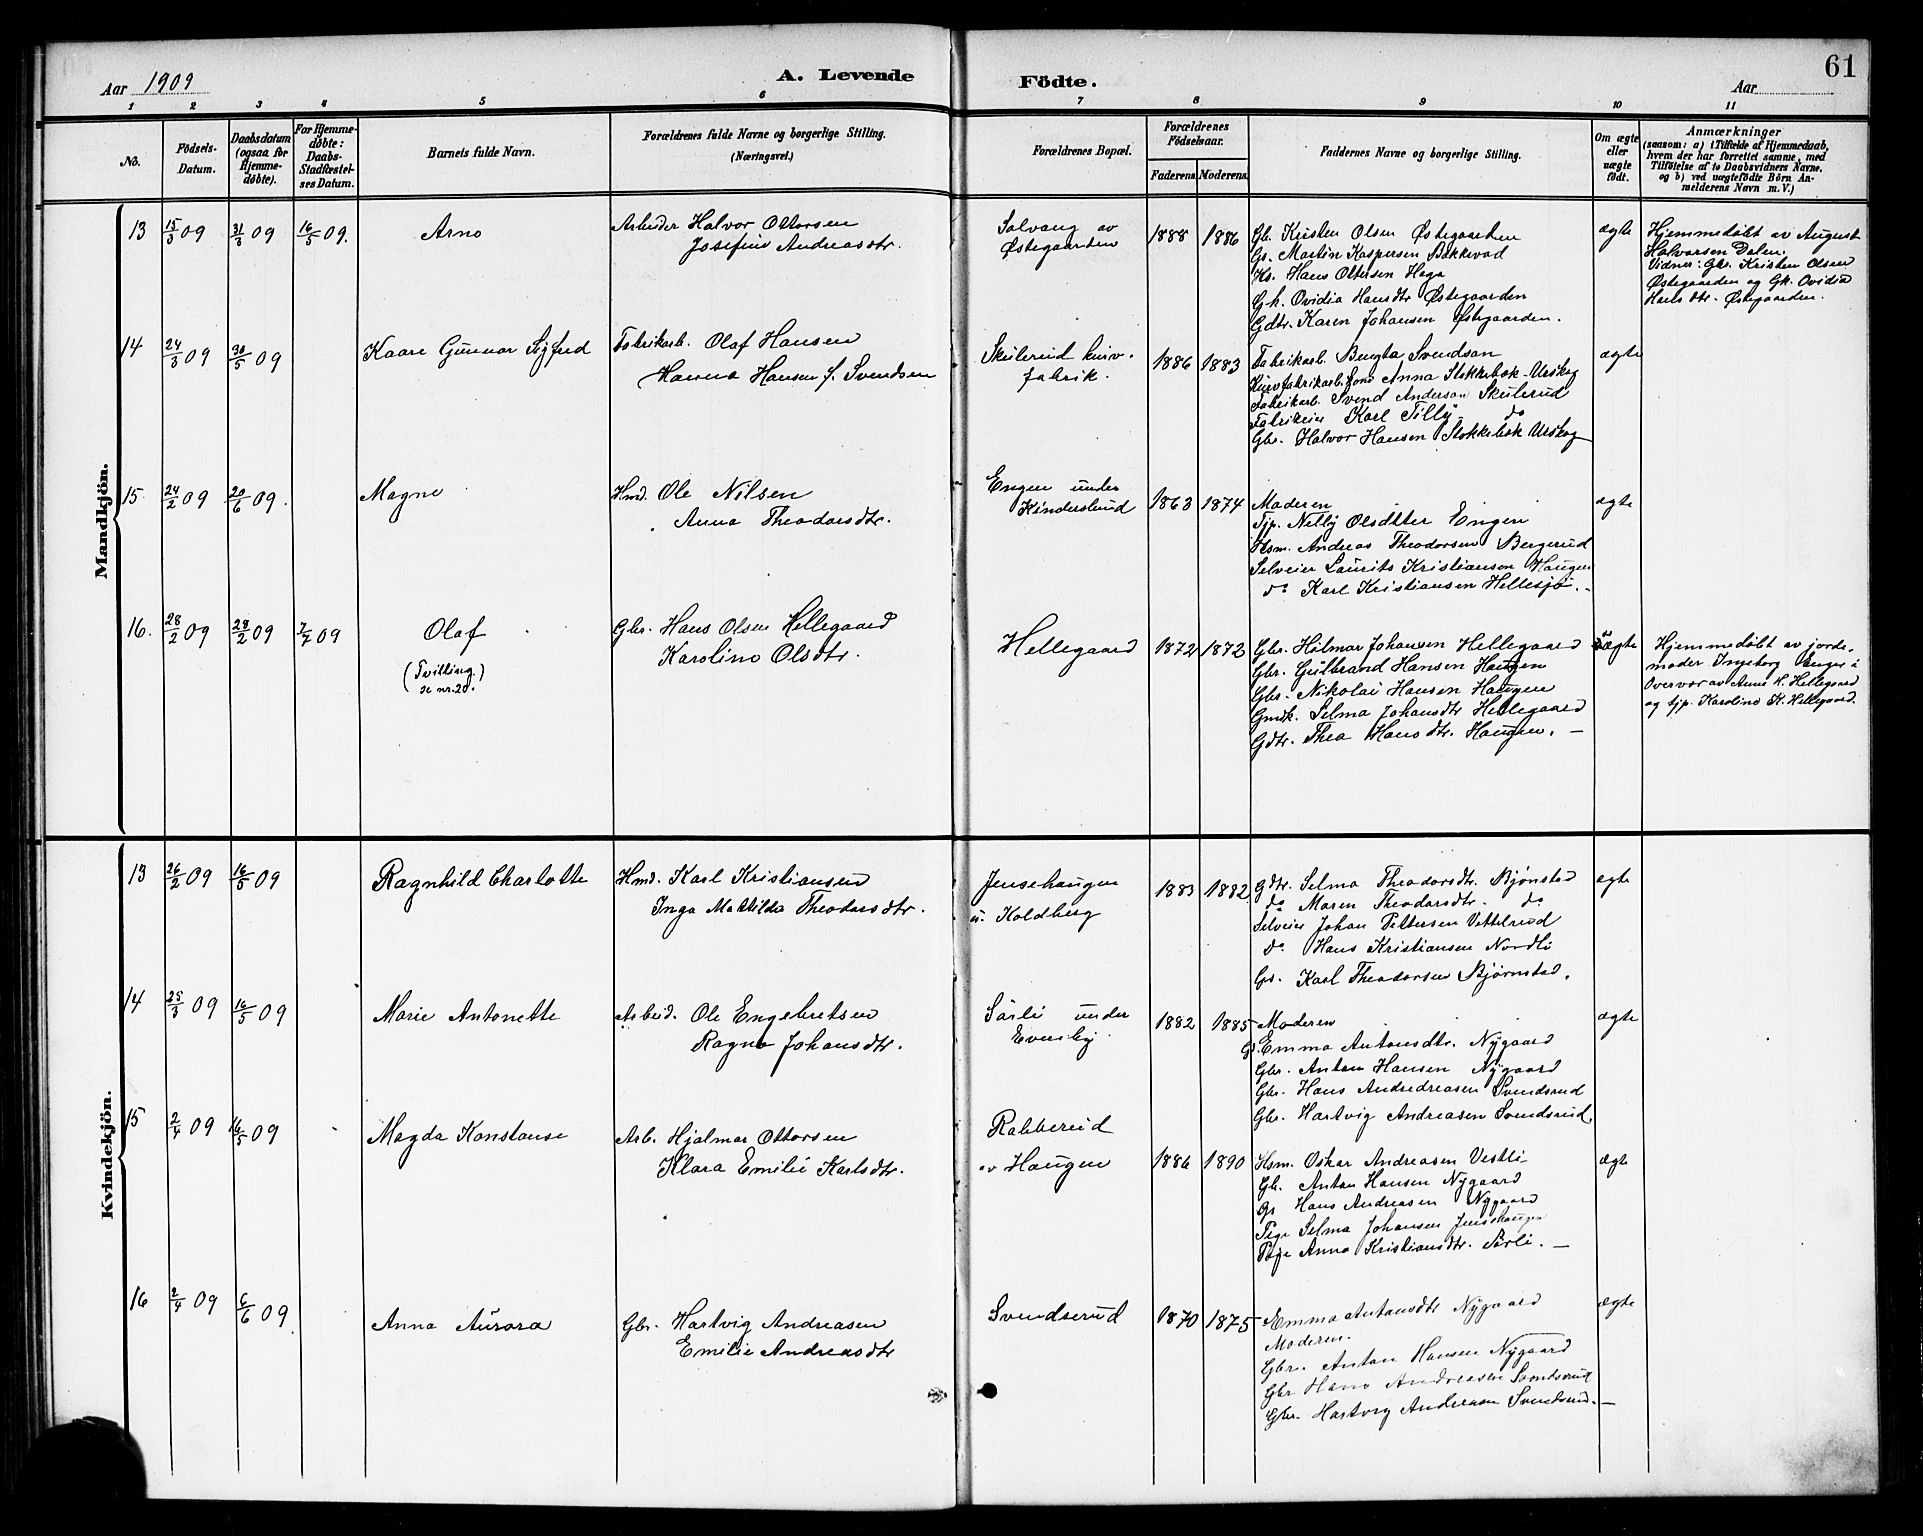 Aar 1909
A. Levende
Födte.
Aar
61
1 2 3 4 5 6 7 8 9 10 11
No.
Födsels-Datum.
Daabsdatum (ogsaa for Hjemme-døbte).
For Hjemme-døbte: Daabs-Stadfæstel-ses Datum.
Barnets fulde Navn.
Forældrenes fulde Navne og borgerlige Stilling.
(Næringsvei.)
Forældrenes Bopæl.
Forældrenes Födselsaar.
Faderens. Moderens.
Faddernes Navne og borgerlige Stilling.
Om ægte eller uægte födt.
Anmærkninger
(saasom: a) i Tilfælde af Hjemmedaab,
hvem der har forrettet samme, med
Tilföielse af to Daabsvidners Navne,
og b) ved uægtefödte Börn An-
melderens Navn m. V.)
Mandkjön.
13 15/3 09 31/3 09 16/5 09.
Arne
Arbeider Halvor Ottersen
Josefine Andreasdtr.
Solvang av
Østegaarden
1888 1886
Gb. Kristen Olsen Østegaarden
Gs. Martin Kaspersen Bækkevad
Ks. Hans Ottersen Haga
Gk. Ovidia Hansdtr Østegaarden
Gdtr. Karen Johansen Østegaarden.
ægte
Hjemmedøbt av August
Halvorsen Dalen.
Vidner: Gbr. Kristen Olsen
Østegaarden og Gk. Ovidia
Hansdtr. Østegaarden.
14 24/3 09 30/5 09
Kaare Gunnar Sigfred
Fabrikarb. Olaf Hansen
Hanna Hansen f. Svendsen
Skulerud kurv-
fabrik.
1886 1883
Fabrikarb. Bengta Svendsen
Kurvfabrikarb. Anna Stokkebæk Urskog
Fabrikarb. Svend Anderson Skulerud
Fabrikeier Karl Tilly do
Gbr. Halvor Hansen Stokkebæk Urskog
ægte
15 24/2 09 20/6 09.
Magne
Hmd. Ole Nilsen
Anna Theodorsdtr.
Engen under
Kinderslrud
1863 1874
Moderen
Tjp. Nelly Olsdtter Engen
Hsm. Andreas Theodorsen Bergerud
Selveier Laurits Kristiansen Haugen
do Karl Kristiansen Hellesjø.
ægte
16. 28/2 09 28/2 09 7/7 09
Olaf
(Tvilling.)
se nr. 20.
Gbr. Hans Olsen Hellegaard
Karoline Olsdtr.
Hellegaard
1872 1872
Gbr. Hilmar Johansen Hellegaard
Gbr. Gulbrand Hansen Haugen
Gbr. Nikolai Hansen Haugen
Gmdk. Selma Johansdtr Hellegaard
Gdtr. Thea Hansdtr. Haugen. —
ægte
Hjemmedøbt av jorde-
moder Ingeborg Enger i
Overvær av Anne H. Hellegaard
og tjp. Karoline K. Hellegaard.
Kvindekjön.
13 26/2 09 16/5 09
Ragnhild Charlotte
Hmd. Karl Kristiansen
Inga Mathilda Theodorsdtr.
Jensehaugen
u. Koldberg
1883 1882
Gdtr. Selma Theodorsdtr. Bjønstad
do Maren Theodorsdtr. do
Selveier Johan Pettersen Vettelrud
do Hans Kristiansen Nordli
Gs. Karl Theodorsen Bjørnstad.
ægte
14 25/3 09 16/5 09
Marie Antonette
Arbeid. Ole Engebretsen
Ragna Johansdtr.
Sørli under
Evensby
1882 1885
Moderen
G. Emma Antonsdtr. Nygaard
Gbr. Anton Hansen Nygaard
Gbr. Hans Andredreasen Svendsrud
Gbr. Hartvig Andreasen Svendsrud
ægte
15 2/4 09 16/5 09
Magda Konstanse
Arb. Hjalmar Ottersen
Klara Emilie Karlsdtr.
Rabberud
av Haugen
1886 1890
Hsm. Oskar Andreasen Vestli
Gb. Anton Hansen Nygaard
Gs Hans Andreasen Nygaard
Pige Selma Johansen Jensehaugen
Pige Anna Kristiansdtr. Sørli. —
ægte
16 2/4 09 6/6 09
Anna Aurora
Gbr. Hartvig Andreasen
Emilie Andreasdtr
Svendserud
1870 1875
Emma Antonsdtr Nygaard
Moderen.
Gbr. Anton Hansen Nygaard
Gbr Hans Andreasen Svendserud
Gbr. Hartvig Andreasen Svendserud. —
ægte